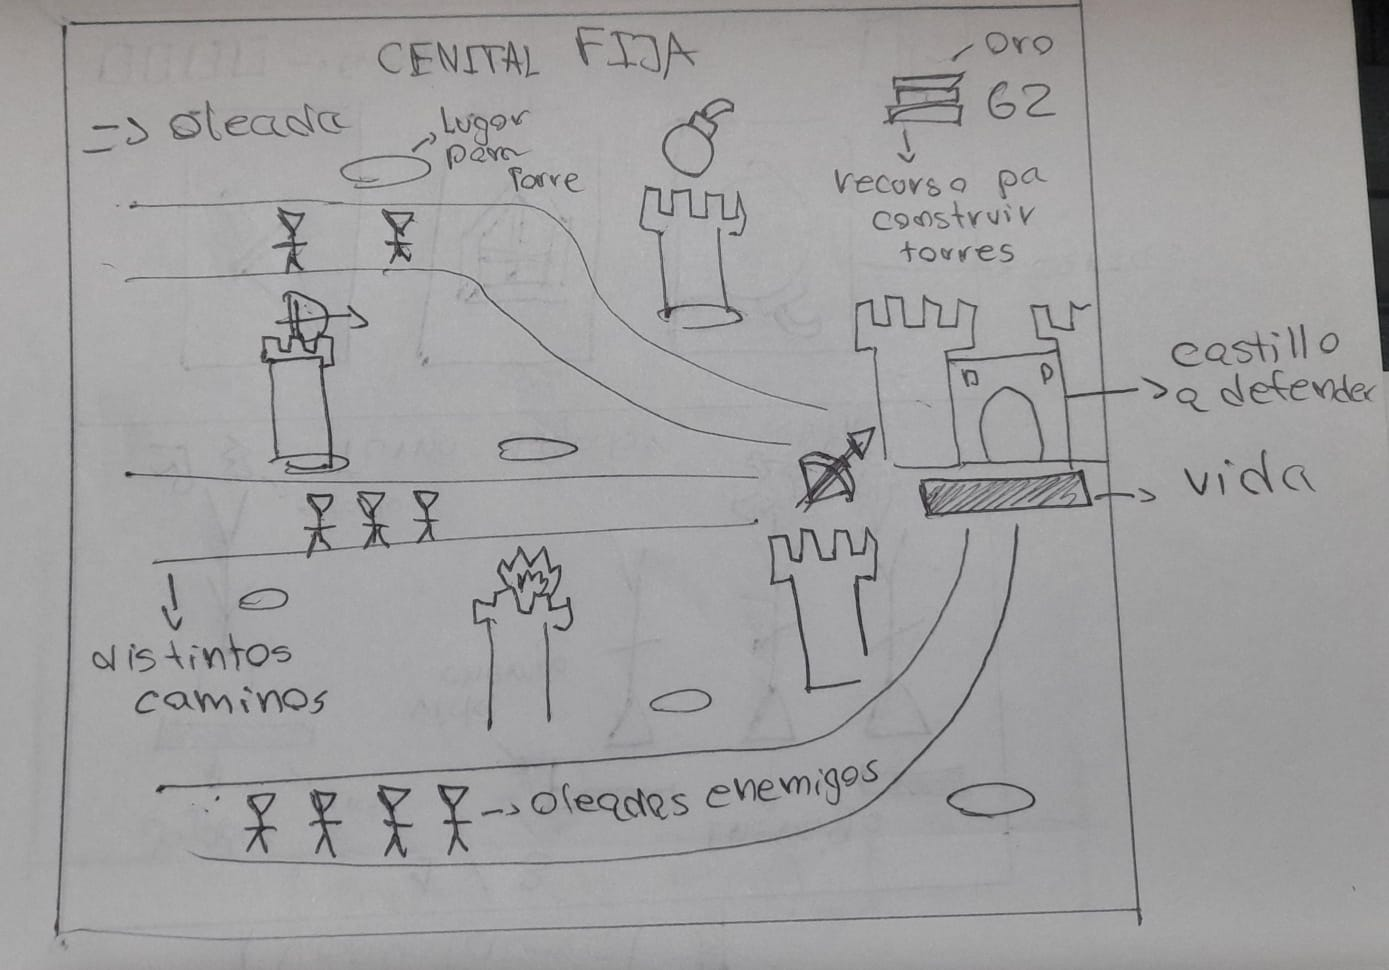 CENITAL FIJA
=> oleada
Lugar
para
Torre
oro
62
recurso pa
construir
torres
castillo
a defender
vida
distintos
caminos
oleadas enemigos